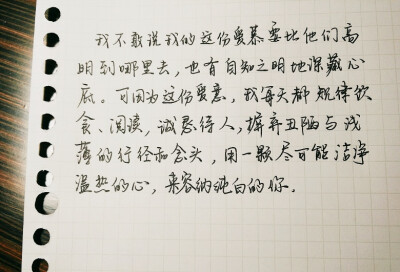 我不敢说我的这份爱慕要比他们高
明到哪里去，也有自知之明地深藏心
底。可因为这份爱意，我每天都规律饮
食、阅读，诚恳待人，摒弃丑陋与浅
薄的行径和念头，用一颗尽可能洁净
温热的心，来容纳纯白的你。